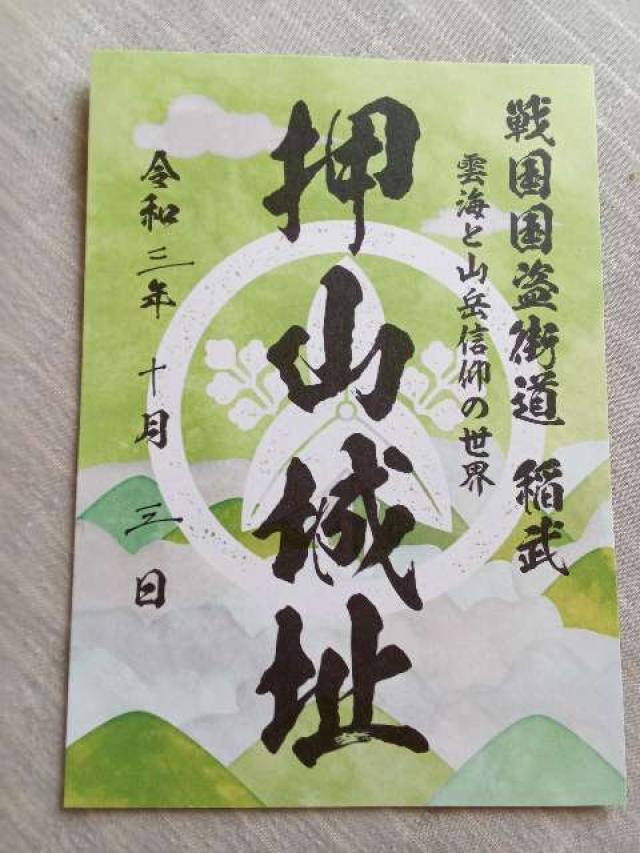 戦国国盗街道 稲武
雲海と山岳信仰の世界
押山城址
令和三年 十月 三日